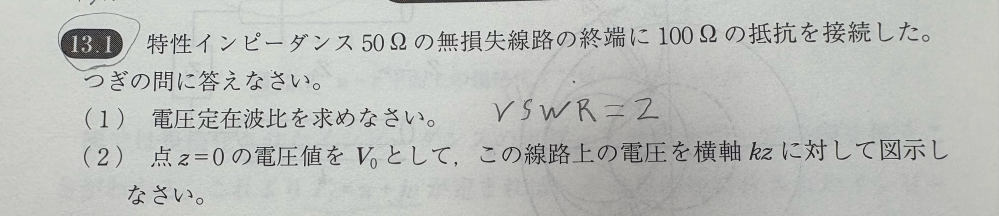 13.1 特性インピーダンス 50 Ω の無損失線路の終端に 100 Ω の抵抗を接続した。
つぎの問に答えなさい。
(1) 電圧定在波比を求めなさい。 VSWR=2
(2) 点 z=0 の電圧値を V₀ として,この線路上の電圧を横軸 kz に対して図示し
なさい。